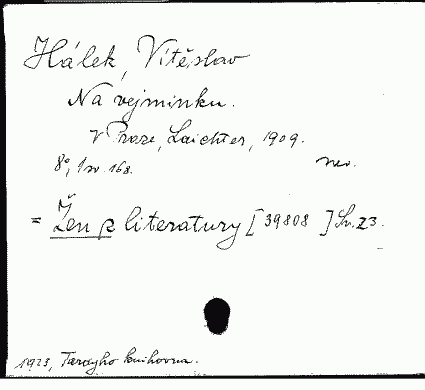 Hálek, Vítěslav
Na vejminku.
V Praze, Laichter, 1909.
8°, 1 sv. 168.
nev.
= Žeň z literatury [39808] Sv. 23.
1923, Tardyho knihovna.